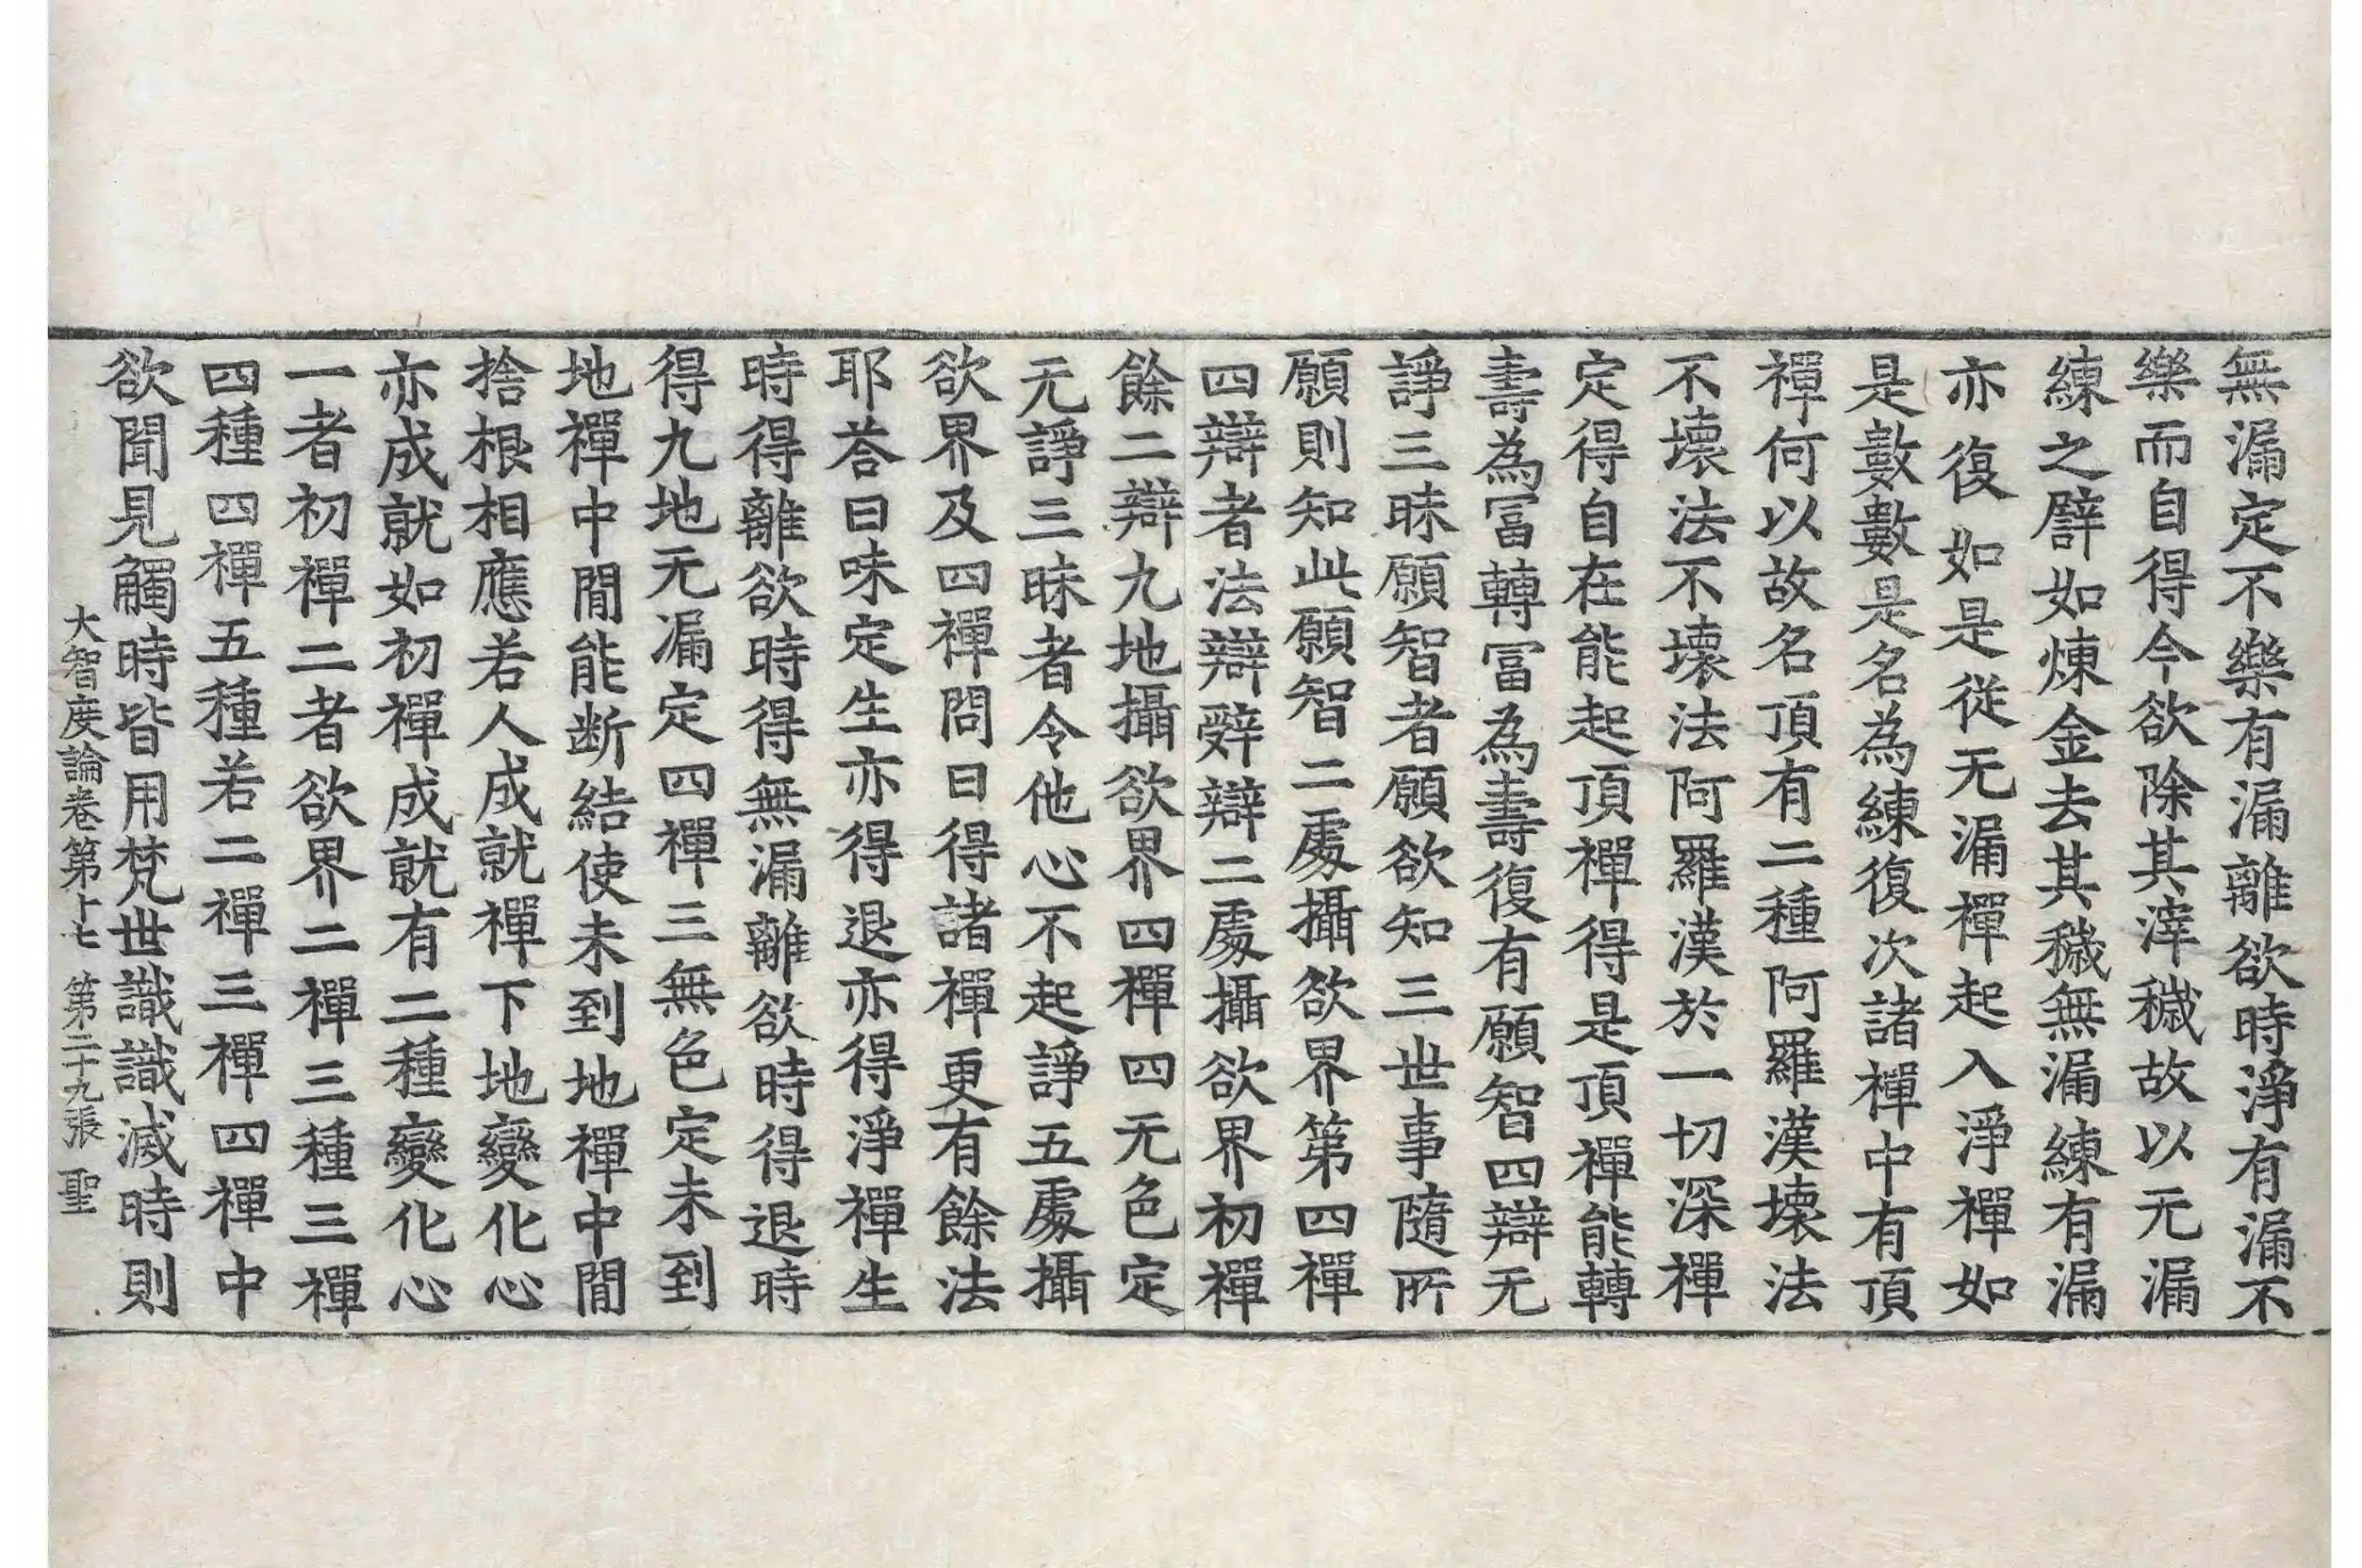 無漏定不樂有漏離欲時淨有漏不
樂而自得今欲除其滓穢故以无漏
練之譬如煉金去其穢無漏練有漏
亦復如是從无漏禪起入淨禪如
是數數是名為練復次諸禪中有頂
禪何以故名頂有二種阿羅漢壞法
不壞法不壞法阿羅漢於一切深禪
定得自在能起頂禪得是頂禪能轉
壽為冨轉冨為壽復有願智四辯无
諍三昧願智者願欲知三世事隨所
願則知此願智二處攝欲界第四禪
四辯者法辯辤辯二處攝欲界初禪
餘二辯九地攝欲界四禪四无色定
无諍三昧者令他心不起諍五處攝
欲界及四禪問曰得諸禪更有餘法
耶荅曰味定生亦得退亦得淨禪生
時得離欲時得無漏離欲時得退時
得九地无漏定四禪三無色定未到
地禪中間能断結使未到地禪中間
捨根相應若人成就禪下地變化心
亦成就如初禪成就有二種變化心
一者初禪二者欲界二禪三種三禪
四種四禪五種若二禪三禪四禪中
欲聞見觸時皆用梵世識識滅時則
大智度論卷第十七 第二十九張 聖